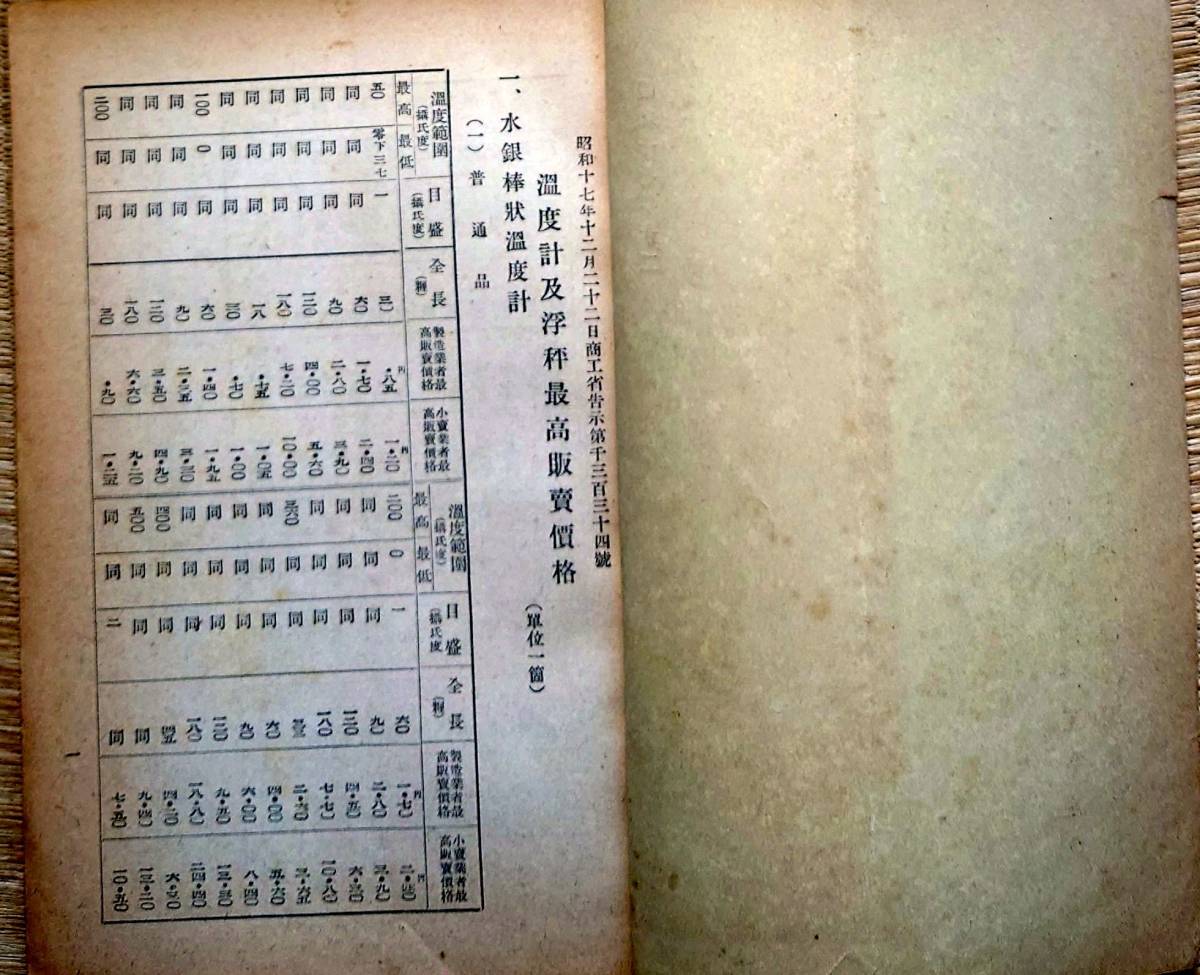 昭和十七年十二月二十二日商工省告示第千三百三十四號
溫度計及浮秤最高販賣價格 (單位一箇)
一、水銀棒狀溫度計
(一) 普通品
溫度範圍(攝氏度) 最高 最低 目盛(攝氏度) 全長(糎) 製造業者最高販賣價格 小賣業者最高販賣價格 溫度範圍(攝氏度) 最高 最低 目盛(攝氏度) 全長(糎) 製造業者最高販賣價格 小賣業者最高販賣價格
五〇 零下三七 一 三〇 ・八五円 一・二〇円 二〇〇 〇 一 六〇 一・七〇円 二・四〇円
同 同 同 六〇 一・七〇 二・四〇 同 同 同 九〇 二・八〇 三・九〇
同 同 同 九〇 二・八〇 三・九〇 同 同 同 一二〇 四・五〇 六・三〇
同 同 同 一二〇 四・〇〇 五・六〇 同 同 同 一八〇 七・七〇 一〇・八〇
同 同 同 一八〇 七・二〇 一〇・〇〇 三六〇 同 同 三三 二・六〇 三・六五
同 同 同 一八 ・七五 一・〇五 同 同 同 六〇 四・〇〇 五・六〇
同 同 同 三〇 ・七〇 一・〇〇 同 同 同 九〇 六・〇〇 八・四〇
一〇〇 〇 同 六〇 一・四〇 一・九五 同 同 同 一二〇 九・五〇 一三・三〇
同 同 同 九〇 二・三五 三・三〇 同 同 同 一八〇 一八・八〇 二四・四〇
同 同 同 一二〇 三・五〇 四・九〇 四〇〇 同 同 四五 四・二〇 六・〇〇
同 同 同 一八〇 六・六〇 九・二〇 五〇〇 同 同 同 九・四〇 一三・二〇
二〇〇 同 同 三〇 ・九〇 一・二五 同 同 二 同 七・五〇 一〇・五〇
一